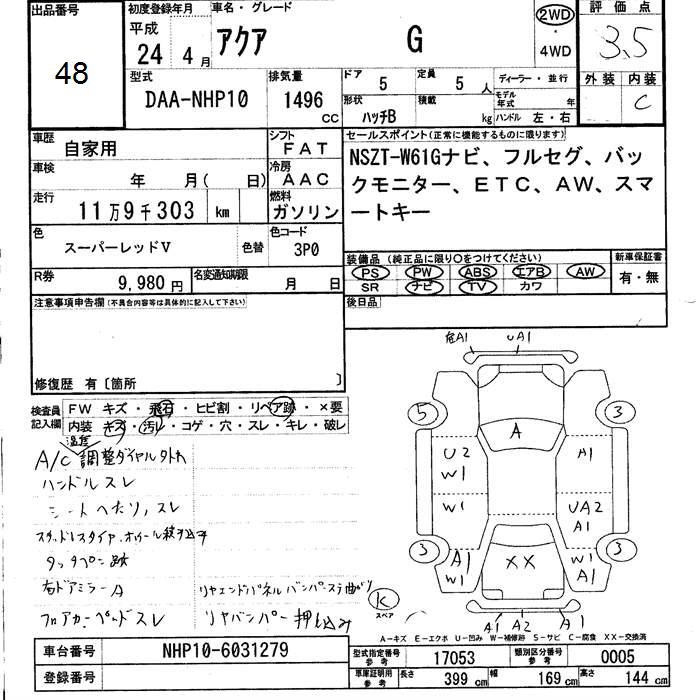 出品番号 初度登録年月 車名・グレード 2WD 評価点
平成
24 4月 アクア G 4WD 3.5
48
型式 排気量 ドア 5 定員 5人 ディーラー・並行 外装 内装
DAA-NHP10 1496 cc 形状 ハッチB 積載 kg モデル年式 年 C
ハンドル 左・右
車歴 自家用 シフト FAT セールスポイント(正常に機能するものに限ります)
車検 年 月( 日) 冷房 AAC NSZT-W61Gナビ、フルセグ、バッ
走行 11万9千303 km 燃料 ガソリン クモニター、ETC、AW、スマ
ートキー
色 スーパーレッドV 色替 色コード 3P0
装備品(純正品に限り○をつけてください) 新車保証書
R券 9,980円 名変通知期限 月 日 PS PW ABS エアB AW 有・無
SR ナビ TV カワ
注意事項申告欄(不具合内容等は具体的に記入して下さい) 後日品
修復歴 有〔箇所 〕
検査員記入欄 FW キズ・飛石・ヒビ割・リペア跡・×要
内装 キズ・汚レ・コゲ・穴・スレ・キレ・破レ
温度
A/C調整ダイヤル外れ
ハンドルスレ
シートへたり、スレ
スタッドレスタイヤ、
タッチペン跡
右ドアミラーA リヤエンドパネルバンパーステ曲がり
フロアカーペットスレ リヤバンパー押込み
A1 UA1
5 3
A
U2 A1
W1
W1 UA2
A1
3 3
A1 XX W1
W1 A1
K
スペア
A1 A2 A1
A-キズ E-エクボ U-凹み W-補修跡 S-サビ C-腐食 XX-交換済
車台番号 NHP10-6031279 型式指定番号 参考 17053 類別区分番号 参考 0005
登録番号 車庫証明用 参考 長さ 399 cm 幅 169 cm 高さ 144 cm